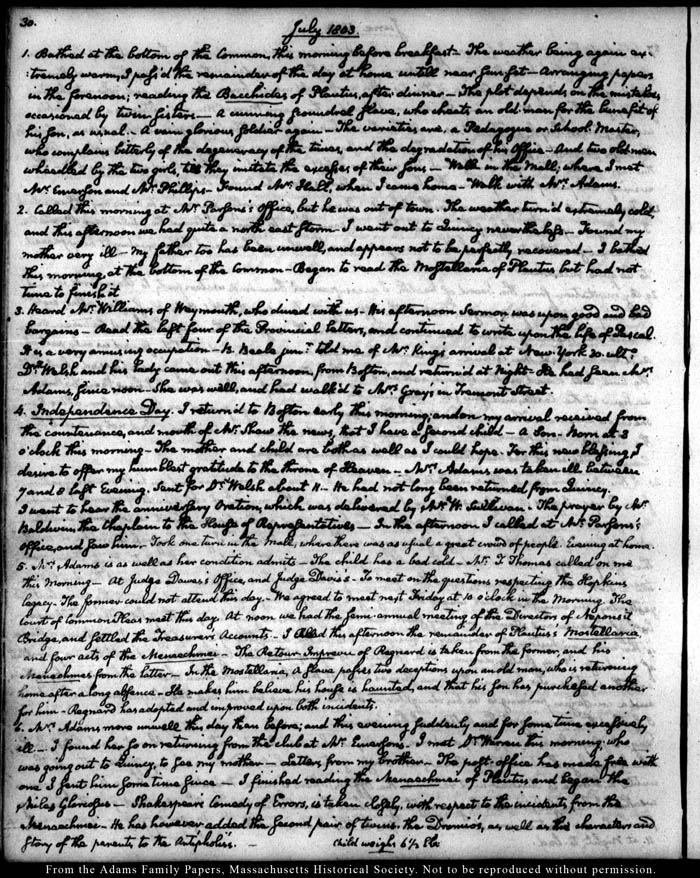 30.
July 1803.
1. Bathed at the bottom of the Common, this morning before breakfast— The weather being again ex-
:tremely warm, I pass'd the remainder of the day at home untill near Sun-set— Arranging papers
in the forenoon; reading the Bacchides of Plautus, after dinner— The plot depends, on the mistakes
occasioned by twin-Sisters— A cunning scoundrel slave, who cheats an old man for the benefit of
his son, as usual.— A vain glorious soldier again— The varieties are, a Pedagogue or School-Master,
who complains bitterly of the degeneracy of the times, and the degradation of his Office— And two old men
wheedled by the two girls, till they imitate the excesses of their sons— Walk in the Mall; where I met
Mr. Emerson and Mr. Phillips— Found Mr. Hall, when I came home— Walk with Mrs. Adams.
2. Called this morning at Mr. Parsons's Office, but he was out of town. The weather turn'd extremely cold,
and this afternoon we had quite a north east storm— I went out to Quincy nevertheless— Found my
mother very ill— My father too has been unwell, and appears not to be perfectly recovered— I bathed
this morning, at the bottom of the Common— Began to read the Mostellaria of Plautus but had not
time to finish it.
3. Heard Mr. Williams of Weymouth, who dined with us— His afternoon Sermon was upon good and bad
bargains— Read the last four of the Provincial Letters, and continued to write upon the life of Pascal.
It is a very amusing occupation— B. Beale junr. told me of Mr. King's arrival at New York 30. ulto.
Dr. Welsh and his lady came out this afternoon, from Boston, and return'd at Night— He had seen Mrs.
Adams, since noon— She was well, and had walk'd to Mrs. Gray's in Tremont Street.
4. Independence Day. I return'd to Boston early this morning; and on my arrival received from
the countenance, and mouth of Mr. Shaw the news, that I have a second child— A Son— Born at 3
o'clock this morning— The mother and child are both as well as I could hope. For this new blessing, I
desire to offer my humblest gratitude to the throne of Heaven— Mrs. Adams was taken ill between
7 and 8 last Evening. Sent for Dr. Welsh about 11— He had not long been returned from Quincy.
I went to hear the anniversary Oration, which was delivered by Mr. W. Sullivan— The prayer by Mr.
Baldwin, the Chaplain to the House of Representatives— In the afternoon I called at Mr. Parsons's
Office, and saw him. Took one turn in the Mall, where there was as usual a great crowd of people. Evening at home.
5. Mrs. Adams is as well as her condition admits— The child has a bad cold— Mr. T. Thomas called on me
this Morning— At Judge Dawes's Office, and Judge Davis's— To meet on the questions respecting the Hopkins
legacy— The former could not attend this day— We agreed to meet next Friday at 10 o'clock in the Morning. The
Court of Common Pleas meet this day. At noon we had the semi-annual meeting of the Directors of Neponsit
Bridge, and settled the Treasurer's Accounts— I read this afternoon the remainder of Plautus's Mostellaria,
and four acts of the Menaechmei— The Retour Imprevu of Regnard is taken from the former, and his
Menechmes from the latter— In the Mostellaria, a slave passes two deceptions upon an old man, who is returning
home after a long absence— He makes him believe his house is haunted, and that his son has purchased another
for him— Regnard has adopted and improved upon both incidents.
6. Mrs. Adams more unwell this day than before; and this evening suddenly, and for some time excessively
ill— I found her so on returning from the club at Mr. Emerson's. I met Dr. Warren this morning who
was going out to Quincy, to see my mother— Letter, from my brother— The post-office has made free with
one I sent him some time since— I finished reading the Menaechmei of Plautus and began the
Miles Gloriosus— Shakespeare Comedy of Errors, is taken closely, with respect to the incidents from the
Menaechmei— He has however added the second pair of twins. the Dromio's, as well as the characters and
story of the parents to the Antipholis's. Child weighs 6½ lbs
From the Adams Family Papers, Massachusetts Historical Society. Not to be reproduced without permission.